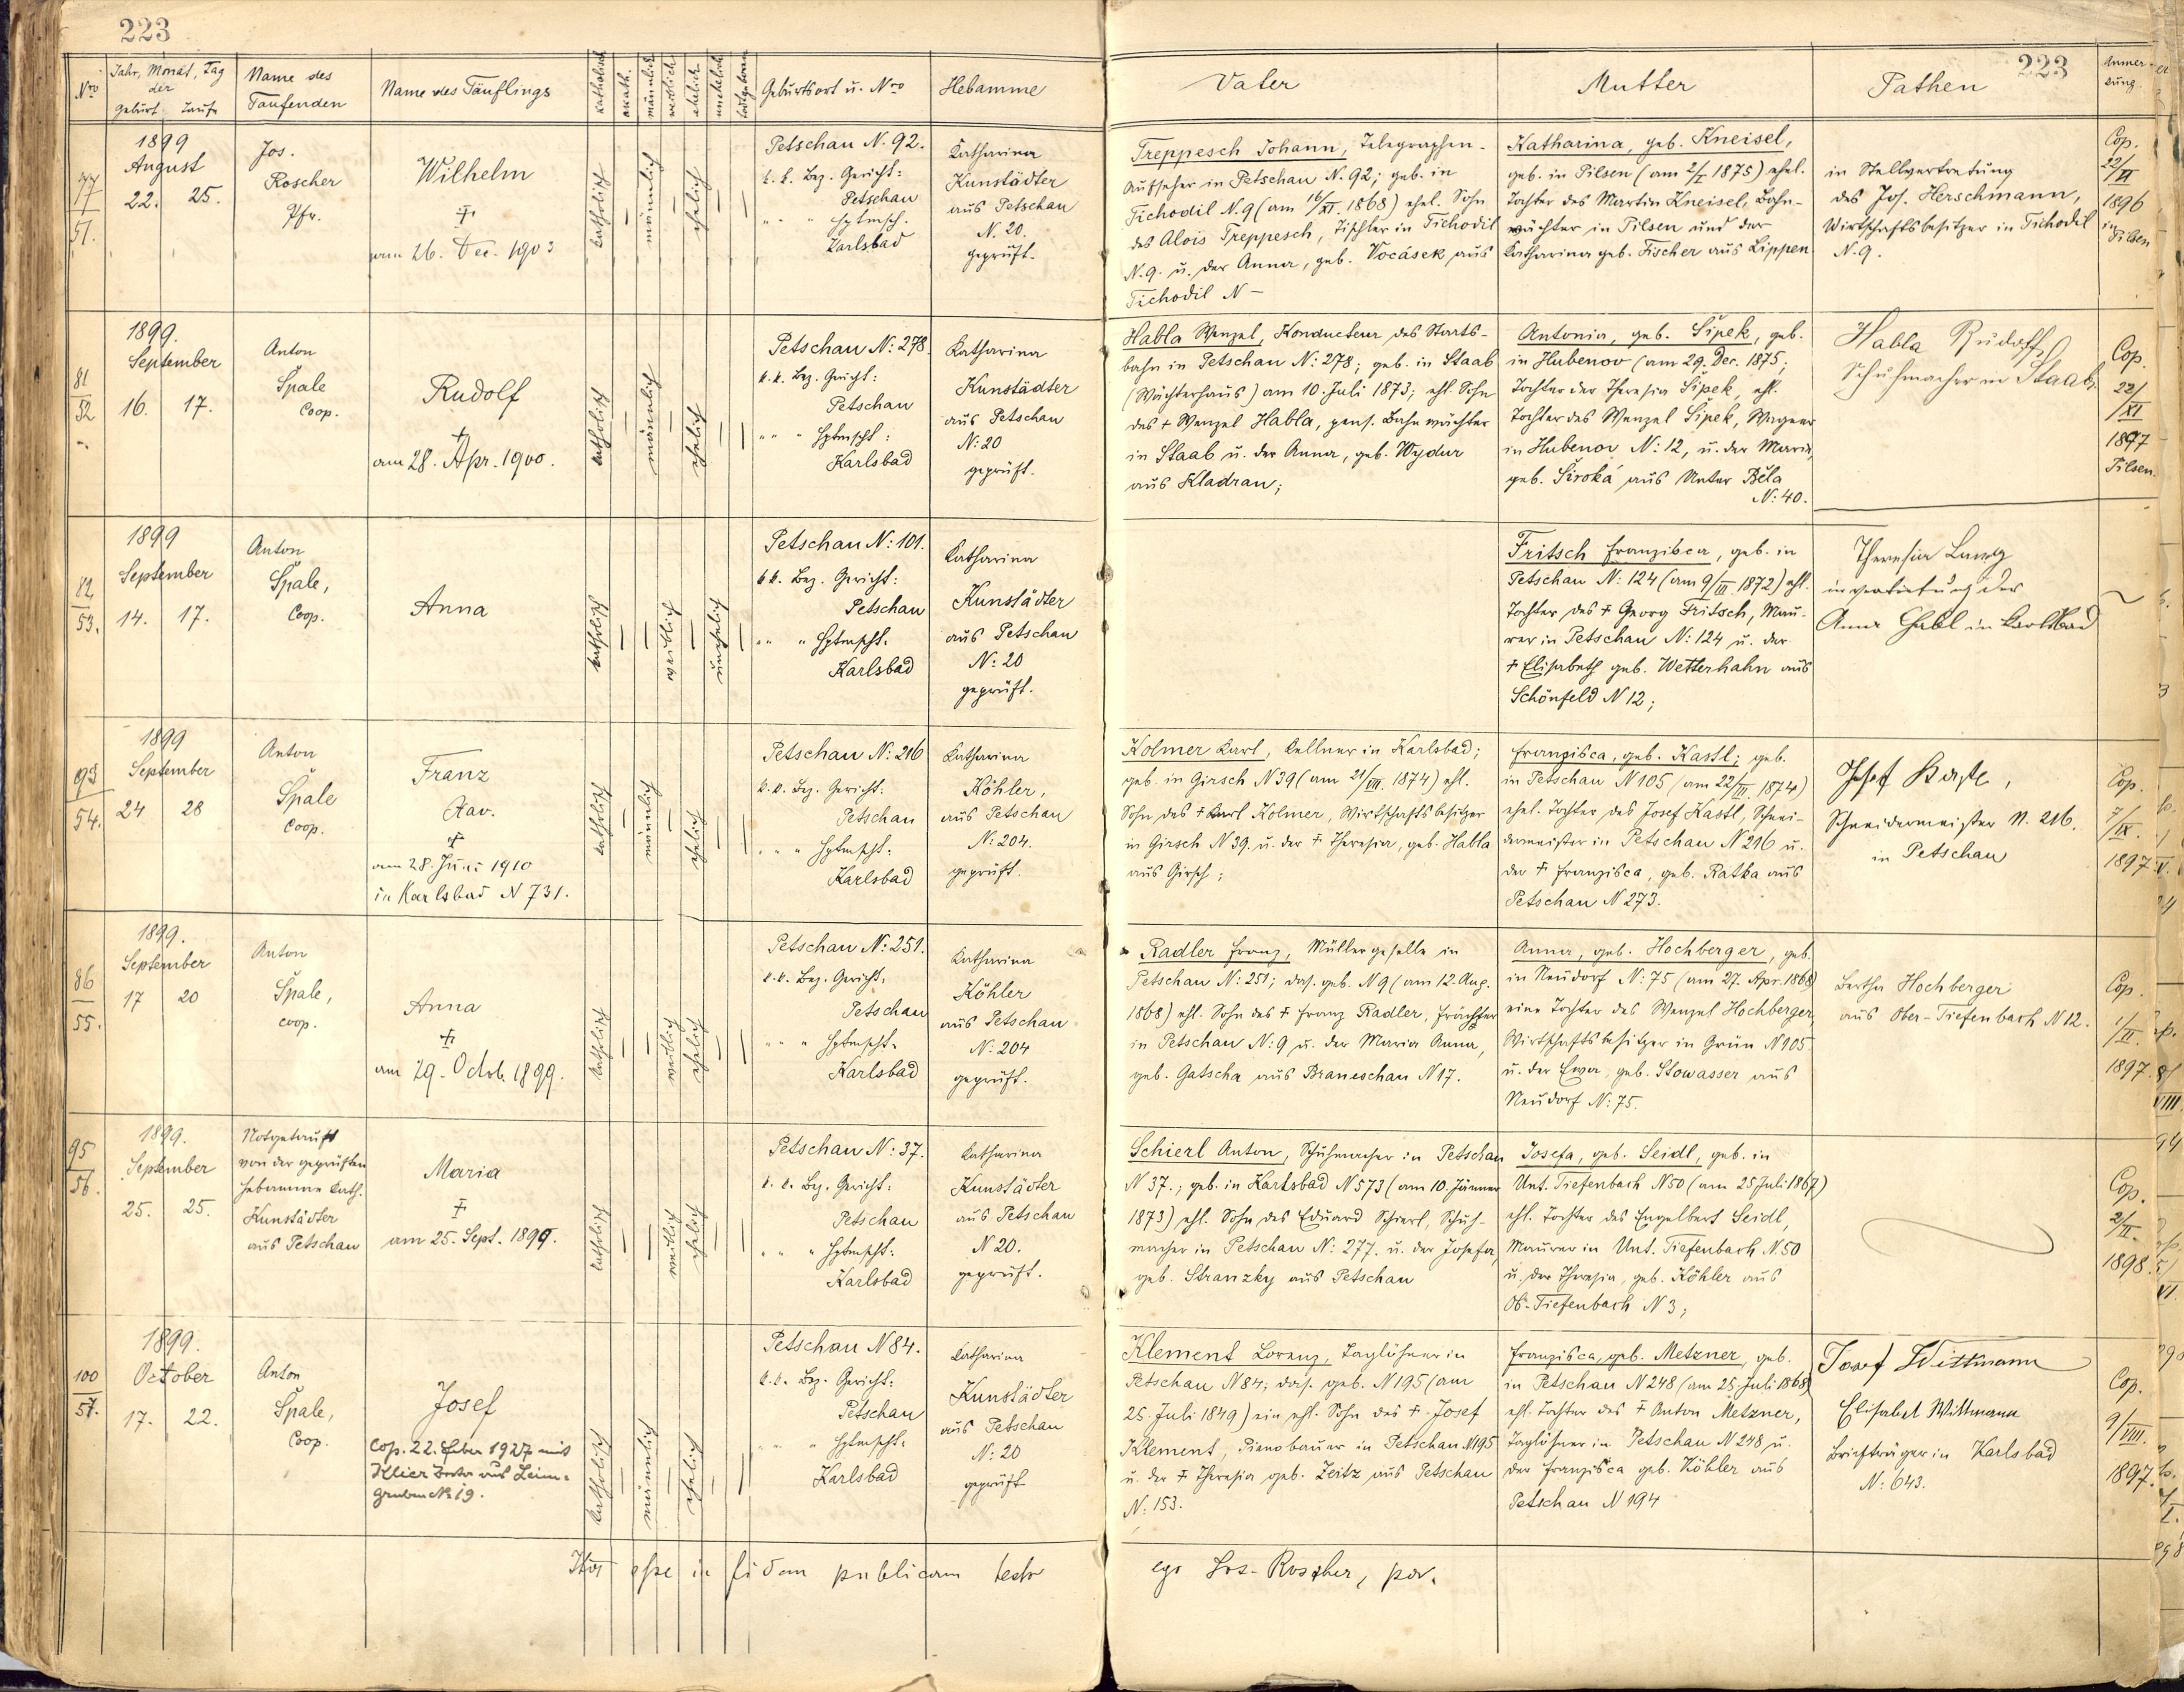 223
223
Nro
Jahr, Monat, Tag
der
Geburt Taufe
Name des
Taufenden
Name des Täuflings
katholisch
akath.
männlich
weiblich
ehelich
unehelich
todtgeboren
Geburtsort u. Nro
Hebamme
Vater
Mutter
Pathen
Anmer-
kung.
77
51.
1899
August
22. 25.
Jos.
Roscher
Pfr.
Wilhelm
†
am 26. Dec. 1903
katholisch
männlich
ehelich
Petschau N. 92.
k. k. Bez. Gericht:
Petschau
" " " Hptmsch.
Karlsbad
Katharina
Kunstädter
aus Petschau
N. 20.
geprüft.
Treppesch Johann, Telegraphen-
Aufseher in Petschau N. 92; geb. in
Tichodil N. 9 (am 16/XI. 1868) ehel. Sohn
des Alois Treppesch, Tischler in Tichodil
N. 9. u. der Anna, geb. Vocásek aus
Tichodil N –
Katharina, geb. Kneisel,
geb. in Pilsen (am 2/I 1875) ehel.
Tochter des Martin Kneisel, Bahn-
wächter in Pilsen und der
Katharina geb. Fischer aus Lippen
in Stellvertretung
des Jos. Herschmann,
Wirtschaftsbesitzer in Tichodil
N. 9.
Cop.
22/VI
1896
in Pilsen
81
52
1899.
September
16. 17.
Anton
Špale
Coop.
Rudolf
†
am 28. Apr. 1900.
katholisch
männlich
ehelich
Petschau N: 278.
k. k. Bez. Gericht:
Petschau
" " " Hptmscht:
Karlsbad
Katharina
Kunstädter
aus Petschau
N: 20
geprüft.
Habla Wenzel, Kondukteur des Staats-
bahn in Petschau N: 278; geb. in Staab
(Wächterhaus) am 10. Juli 1873; ehl. Sohn
des † Wenzel Habla, pens. Bahnwächter
in Staab u. der Anna, geb. Wydur
aus Kladrau;
Antonia, geb. Šipek, geb.
in Hubenov (am 29. Dec. 1875;
Tochter der Theresia Šipek, ehl.
Tochter des Wenzel Šipek, Wagner
in Hubenov N: 12, u. der Maria,
geb. Široká aus Unter Běla
N: 40.
Habla Rudolf
Schuhmacher in Staab.
Cop.
22/XI
1897
Pilsen.
82
53.
1899
September
14. 17.
Anton
Špale,
Coop.
Anna
katholisch
weiblich
unehelich
Petschau N: 101.
k k. Bez. Gericht:
Petschau
" " " Hptmscht.
Karlsbad
Katharina
Kunstädter
aus Petschau
N: 20
geprüft.
Fritsch Franzisca, geb. in
Petschau N: 124 (am 9/III 1872) ehl.
Tochter des † Georg Fritsch, Mau-
rer in Petschau N: 124 u. der
† Elisabeth geb. Wetterhahn aus
Schönfeld N 12;
Theresia Lang
in vertretung der
Anna Gabl in Karlsbad
93
54.
1899
September
24 28
Anton
Špale
Coop.
Franz
Xav.
†
am 28. Juni 1910
in Karlsbad N 731.
katholisch
männlich
ehelich
Petschau N: 216
k. k. Bez. Gericht:
Petschau
" " " Hptmscht:
Karlsbad
Katharina
Köhler,
aus Petschau
N: 204.
geprüft.
Kolmer Karl, Kellner in Karlsbad;
geb. in Girsch N 39 (am 21/VIII. 1874) ehl.
Sohn des † Karl Kolmer, Wirtschaftsbesitzer
in Girsch N 39. u. der † Theresia, geb. Habla
aus Girsch;
Franzisca, geb. Kastl; geb.
in Petschau N 105 (am 22/III. 1874)
ehel. Tochter des Josef Kastl, Schnei-
dermeister in Petschau N 216 u.
der † Franzisca, geb. Ratka aus
Petschau N 273.
Josef Kastl,
Schneidermeister N. 216.
in Petschau
Cop.
7/IX.
1897
86
55.
1899.
September
17 20
Anton
Špale,
coop.
Anna
†
am 29. Octob. 1899.
katholisch
weiblich
ehelich
Petschau N: 251.
k. k. Bez. Gericht.
Petschau
" " " Hptmscht.
Karlsbad
Katharina
Köhler
aus Petschau
N: 204
geprüft.
Radler Franz, Müllergeselle in
Petschau N: 251; das. geb. N 9 (am 12. Aug.
1868) ehl. Sohn des † Franz Radler, Frächter
in Petschau N: 9 u. der Maria Anna,
geb. Gatscha aus Braneschau N 17.
Anna, geb. Hochberger, geb.
in Neudorf N: 75 (am 27. Apr. 1868)
eine Tochter des Wenzel Hochberger,
Wirtschaftsbesitzer in Grün N 105.
u. der Eva, geb. Stowasser aus
Neudorf N: 75.
Bertha Hochberger
aus Ober-Tiefenbach N 12.
Cop.
1/II.
1897.
95
56.
1899.
September
25. 25.
Notgetauft
von der geprüften
Hebamme Kath.
Kunstädter
aus Petschau
Maria
†
am 25. Sept. 1899.
katholisch
weiblich
ehelich
Petschau N: 37.
k. k. Bez. Gericht:
Petschau
" " " Hptmscht:
Karlsbad
Katharina
Kunstädter
aus Petschau
N 20.
geprüft.
Schierl Anton, Schuhmacher in Petschau
N 37.; geb. in Karlsbad N 573 (am 10. Jänner
1873) ehl. Sohn des Eduard Schierl, Schuh-
macher in Petschau N: 277. u. der Josefa,
geb. Stranzky aus Petschau
Josefa, geb. Seidl, geb. in
Unt. Tiefenbach N 50 (am 25 Juli 1867)
ehl. Tochter des Engelbert Seidl,
Maurer in Unt. Tiefenbach N. 50
u. der Theresia, geb. Köhler aus
Ob-Tiefenbach N 3;
Cop.
2/II.
1898.
100
57.
1899.
October
17. 22.
Anton
Špale,
Coop.
Josef
Cop. 22. Feber 1927 mit
Klier aus Leim-
gruben № 19.
katholisch
männlich
ehelich
Petschau N 84.
k. k. Bez. Gericht:
Petschau
" " " Hptmscht:
Karlsbad
Katharina
Kunstädter
aus Petschau
N: 20
geprüft
Klement Lorenz, Taglöhner in
Petschau N 84; das. geb. N 195 (am
25. Juli 1849) ein ehl. Sohn des † Josef
Klement, Pianobauer in Petschau N195
u. der † Theresia geb. Zeitz aus Petschau
N: 153.
Franzisca, geb. Metzner, geb.
in Petschau N 248 (am 25 Juli 1868)
ehl. Tochter des † Anton Metzner,
Taglöhner in Petschau N 248 u.
der Franzisca geb. Köhler aus
Petschau N 194
Josef Wittmann
Elisabet Wittmann
Briefträger in Karlsbad
N: 643.
Cop.
9/VIII.
1897.
Ita esse in fidem publicam testor
ego Jos. Roscher, par.